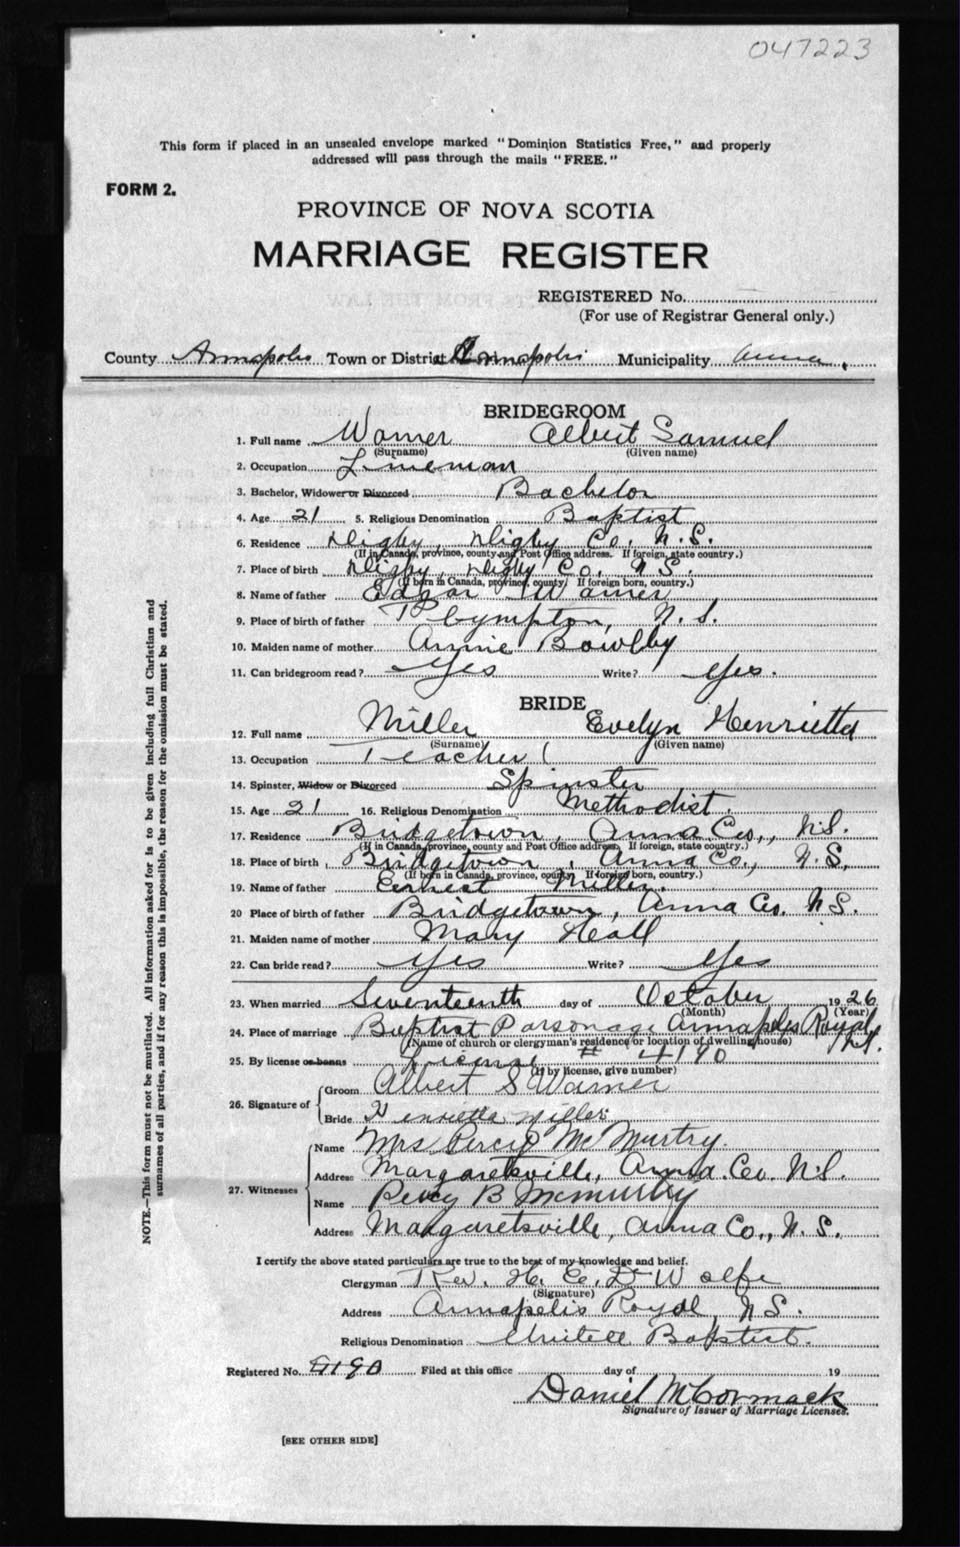 047223
This form if placed in an unsealed envelope marked "Dominion Statistics Free," and properly
addressed will pass through the mails "FREE."
FORM 2.
PROVINCE OF NOVA SCOTIA
MARRIAGE REGISTER
REGISTERED No.
(For use of Registrar General only.)
County Annapolis Town or District Annapolis Municipality Anna.
BRIDEGROOM
1. Full name Warner Albert Samuel
(Surname) (Given name)
2. Occupation Lineman
3. Bachelor, Widower or Divorced Bachelor
4. Age 21 5. Religious Denomination Baptist
6. Residence Digby, Digby Co. N.S.
(If in Canada, province, county and Post Office address. If foreign, state country.)
7. Place of birth Digby, Digby Co. N.S.
(If born in Canada, province, county. If foreign born, country.)
8. Name of father Edgar Warner
9. Place of birth of father Plympton, N.S.
10. Maiden name of mother Annie Bowlby
11. Can bridegroom read? Yes Write? Yes.
BRIDE
12. Full name Miller Evelyn Henrietta
(Surname) (Given name)
13. Occupation Teacher
14. Spinster, Widow or Divorced Spinster
15. Age 21 16. Religious Denomination Methodist.
17. Residence Bridgetown, Anna Co., N.S.
(If in Canada, province, county and Post Office address. If foreign, state country.)
18. Place of birth Bridgetown, Anna Co., N.S.
(If born in Canada, province, county. If foreign born, country.)
19. Name of father Ernest Miller.
20 Place of birth of father Bridgetown, Anna Co. N.S.
21. Maiden name of mother Mary Hall
22. Can bride read? Yes Write? Yes
23. When married Seventeenth day of October 1926
(Month) (Year)
24. Place of marriage Baptist Parsonage Annapolis Royal N.S.
(Name of church or clergyman's residence or location of dwelling house)
25. By license or banns License # 4190
(If by license, give number)
26. Signature of Groom Albert S Warner
Bride Henrietta Miller
27. Witnesses Name Mrs Percy McMurtry.
Address Margaretsville, Anna. Co. N.S.
Name Percy B McMurtry
Address Margaretsville, Anna Co., N.S.
I certify the above stated particulars are true to the best of my knowledge and belief.
Clergyman Rev. H. E. DeWolfe
(Signature)
Address Annapolis Royal N.S.
Religious Denomination United Baptist.
Registered No. 4190 Filed at this office day of 19
Daniel McCormack
Signature of Issuer of Marriage Licenses.
[SEE OTHER SIDE]
NOTE.—This form must not be mutilated. All information asked for is to be given including full Christian and
surnames of all parties, and if for any reason this is impossible, the reason for the omission must be stated.